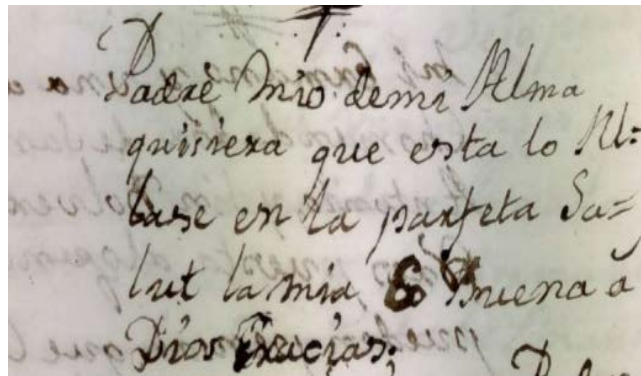 Padre mio demi Alma
quisiera que esta lo Al=
lase en la parfeta Sa=
lut la mia Es Buena a
Dios Gracias.